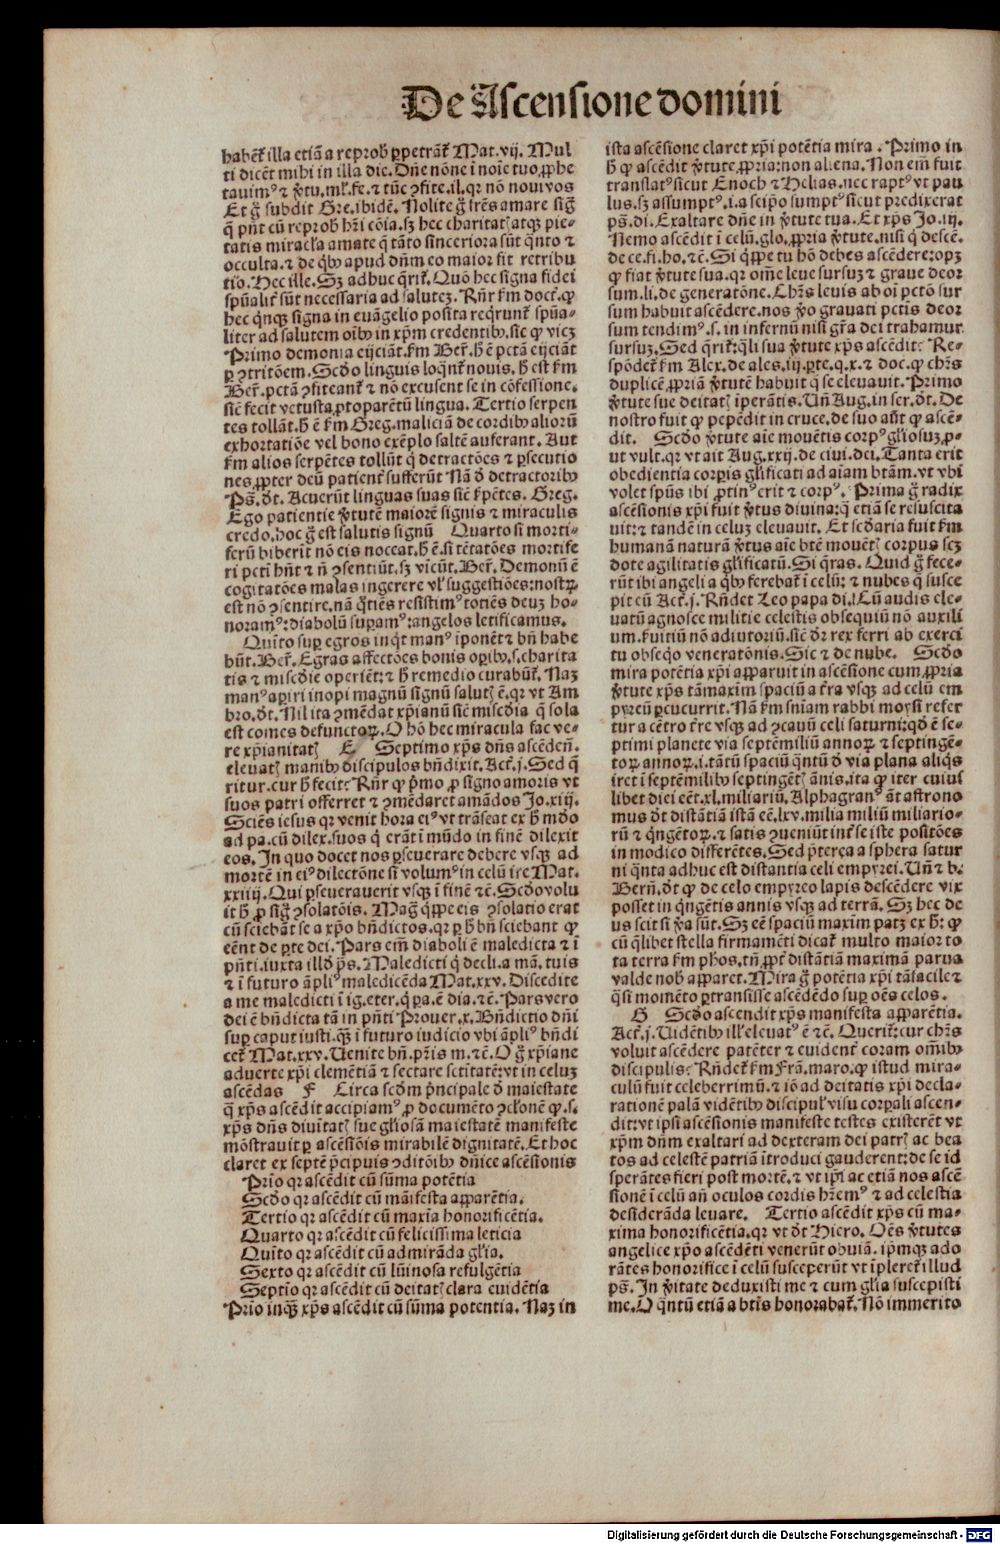 De Ascensione domini
habẽt̃ illa etiã a reprob̃ ꝑpetrãt̃ Mat.vij. Mul
ti dicẽt mihi in illa die. Dñe nõne ĩ noĩe tuo ꝓphe
tauimꝰ ⁊ ꝟtu. ml̃. fe. ⁊ tũc ꝯfite. il. qꝛ nõ noui vos
Et g̃ subdit Gre. ibidẽ. Nolite g̃ fr̃es amare sig̃
q̃ pñt cũ reprob̃ hr̃i cõia. sꝫ hec charitatꝭ atqꝫ pie-
tatis miracl̃a amate q̃ tãto sinceriora sũt q̃nto ⁊
occulta. ⁊ de q̃bꝰ apud dñm eo maior fit retribu
tio. Hec ille. Sꝫ adhuc q̃rit̃. Quõ hec signa fidei
spũalit̃ sũt necessaria ad salutẽ. Rñr ẜm doct. ꝙ
hec q̃nqꝫ signa in euãgelio posita reqr̃unt̃ spũa-
liter ad salutem oĩbꝰ in xp̃m credentibꝰ. sic ꝙ vicꝫ
Primo demonia eijciãt. ẜm Ber̃. h̃ ẽ pctã eijciãt
ꝑ ꝯtritõem. Scd̃o linguis loq̃nt̃ nouis. h̃ est ẜm
Ber̃. pctã ꝯfiteant̃ ⁊ nõ excusent se in cõfessione.
sic̃ fecit vetusta ꝓtoparẽtũ lingua. Tertio serpen
tes tollãt. h̃ ẽ ẜm Greg. maliciã de cordibꝰ alioꝛũ
exhortatiõe vel bono exẽplo saltẽ auferant. Aut
ẜm alios serpẽtes tollũt q̃ detractões ⁊ ꝑsecutio
nes ꝓpter deũ patient̃ sufferũt Nã d̃ detractoribꝰ
Ps̃. d̃t. Acuerũt linguas suas sic̃ ẜpẽtes. Greg.
Ego patientie ꝟtutẽ maiorẽ signis ⁊ miraculis
credo. hoc g̃ est salutis signũ Quarto si morti-
ferũ biberĩt nõ eis noceat. h̃ ẽ. si tẽtatões mortife
ri pctĩ hñt ⁊ ñ ꝯsentiũt. sꝫ vicũt. Ber̃. Demonũ ẽ
cogitatões malas ingerere vl̃ suggestiões: nostꝝ
est nõ ꝯsentire. nã q̃tiẽs resistimꝰ totiẽs deuꝫ ho-
noramꝰ: diabolũ suꝑamꝰ: angelos letificamus.
Quĩto suꝑ egros inq̃t manꝰ ĩponẽt ⁊ bñ habe
bũt. Ber̃. Egras affectões bonis oꝑibꝰ. s. charita
tis ⁊ misc̃die operiẽt: ⁊ h̃ remedio curabũt̃. Naꝫ
manꝰ aꝑiri inopi magnũ signũ salutꝭ ẽ. qꝛ vt Am
bro. d̃t. Nil ita ꝯmẽdat xp̃ianũ sic̃ misc̃dia q̃ sola
est comes defunctoꝝ. O hõ hec miracula fac ve-
re xp̃ianitatꝭ E Septimo xp̃s dñs ascẽdeñ.
eleuatꝭ manibꝰ discipulos bñdixit. Act̃. j. Sed q̃
ritur. cur h̃ fecit: Rñr ꝙ p̃mo ꝓ signo amoris vt
suos patri offerret ⁊ ꝯmẽdaret amãdos Jo. xiij.
Sciẽs iesus qꝛ venit hora eiꝰ vt trãseat ex h̃ mũdo
ad pa. cũ dilex. suos q̃ erãt ĩ mũdo in finẽ dilexit
eos. In quo docet nos ꝑseuerare debere vsqꝫ ad
mortẽ in eiꝰ dilectõne si volumꝰ in celũ ire Mat.
xxiiij. Qui ꝑseuerauerit vsqꝫ ĩ finẽ ⁊c̃. Scd̃o volu
it h̃ ꝓ sig̃ ꝯsolatõis. Mag̃ q̃ꝑe eis ꝯsolatio erat
cũ sciebãt se a xp̃o bñdictos. qꝛ ꝑ h̃ bñ sciebant ꝙ
eẽnt de ꝑte dei. Pars em̃ diaboli ẽ maledicta ⁊ ĩ
pñti. iuxta illd̃ ps̃. Maledicti q̃ decli. a mã. tuis
⁊ ĩ futuro ãpliꝰ maledicẽda Mat. xxv. Discedite
a me maledicti ĩ ig. eter. q̃ ꝑa. ẽ dia. ⁊c̃. Pars vero
dei ẽ bñdicta tã in pñti Prouer. x. Bñdictio dñi
suꝑ caput iusti. qꝫ̃ ĩ futuro iudicio vbi ãpliꝰ bñdi
cet̃ Mat. xxv. Uenite bñ. pr̃is m. ⁊c̃. O g̃ xp̃iane
aduerte xp̃i clemẽtiã ⁊ sectare sctitatẽ: vt in celuꝫ
ascẽdas F Circa scd̃m p̃ncipale d̃ maiestate
q̃ xp̃s ascẽdit accipiamꝰ ꝓ documẽto ꝯclõnẽ ꝙ. s.
xp̃s dñs diuitatꝭ sue gl̃iosã maiestatẽ manifeste
mõstrauit ꝑ ascẽsiõis mirabilẽ dignitatẽ. Et hoc
claret ex septẽ p̃cipuis ꝯditõibꝰ dñice ascẽsionis
Prĩo qꝛ ascẽdit cũ sũma potẽtia
Scd̃o qꝛ ascẽdit cũ mãifesta apparẽtia.
Tertio qꝛ ascẽdit cũ maxĩa honorificẽtia.
Quarto qꝛ ascẽdit cũ felicissĩa leticia
Quĩto qꝛ ascẽdit cũ admirãda gl̃ia.
Sexto qꝛ ascẽdit cũ lũinosa refulgẽtia
Septĩo qꝛ ascẽdit cũ deitatꝭ clara euidẽtia
Prĩo inqꝫ̃ xp̃s ascẽdit cũ sũma potentia. Naꝫ in
ista ascẽsione claret xp̃i potẽtia mira. Primo in
h̃ ꝙ ascẽdit ꝟtute ꝓpria: non aliena. Non em̃ fuit
translatꝰ sicut Enoch ⁊ Helias. nec raptꝰ vt pau
lus. sꝫ assumptꝰ. i. a seipo sumptꝰ sicut predixerat
ps̃. di. Exaltare dñe in ꝟtute tua. Et xp̃s Jo. iij.
Nemo ascẽdit ĩ celũ. glo. ꝓpria ꝟtute. nisi q̃ descẽ.
de ce. fi. ho. ⁊c̃. Si q̃ꝑe tu hõ debes ascẽdere: opꝫ
ꝙ fiat ꝟtute sua. qꝛ om̃e leue sursuꝫ ⁊ graue deor
sum. li. de generatõne. Chr̃s leuis ab oĩ pctõ sur
sum habuit ascẽdere. nos ꝟo grauati pctis deor
sum tendimꝰ. s. in infernũ nisi gr̃a dei trahamur
sursuꝫ. Sed q̃rit̃: q̃li sua ꝟtute xp̃s ascẽdit: Re-
spõdet̃ ẜm Alex. de ales. iij. ꝑte. q. x. ⁊ doc. ꝙ chr̃s
duplicẽ ꝓpriã ꝟtutẽ habuit q̃ se eleuauit. Primo
ꝟtute sue deitatꝭ iperãtis. Uñ Aug. in ser. d̃t. De
nostro fuit ꝙ pepẽdit in cruce. de suo aũt ꝙ ascẽ-
dit. Scd̃o ꝟtute aĩe mouẽtis corpꝰ gl̃iosuꝫ ꝓ-
ut vult. qꝛ vt ait Aug. xxij. de ciui. dei. Tanta erit
obedientia corꝑis gl̃ificati ad aĩam btãm. vt vbi
volet spũs ibi ꝓtinꝰ erit ⁊ corpꝰ. Prima g̃ radix
ascẽsionis xp̃i fuit ꝟtus diuina: q̃ etiã se resuscita
uit: ⁊ tandẽ in celuꝫ eleuauit. Et scd̃aria fuit ẜm
humanã naturã ꝟtus aĩe btẽ mouẽtꝭ corpus scꝫ
dote agilitatis gl̃ificatũ. Si q̃ras. Quid g̃ fece-
rũt ibi angeli a q̃bꝰ ferebat̃ ĩ celũ: ⁊ nubes q̃ susce
pit eũ Act̃. j. Rñdet Leo papa di. Cũ audis ele-
uatũ agnosce militie celestis obsequiũ nõ auxili
um. fuitiũ nõ adiutoriũ. sic̃ d̃r rex ferri ab exerci
tu obseq̃o veneratõnis. Sic ⁊ de nube. Scd̃o
mira potẽtia xp̃i apparuit in ascẽsione cum ꝓpria
ꝟtute xp̃s tãmaxim spaciũ a t̃ra vsqꝫ ad celũ em
pyreũ ꝑcucurrit. Nã ẜm sñiam rabbi moysi refer
tur a cẽtro t̃re vsqꝫ ad ꝯcauũ celi saturni: qd̃ ẽ se-
ptimi planete via septẽmiliũ annoꝝ ⁊ septingẽ-
toꝝ annoꝝ. i. tãtũ spaciũ q̃ntũ d̃ via plana aliq̃s
iret ĩ septẽmilibꝰ septingẽtꝭ ãnis. ita ꝙ iter cuiuſ
libet diei eẽt. xl. miliariũ. Alphagranꝰ ãt astrono
mus d̃t distãtiã istã eẽ. lxv. milia miliũ miliario-
rũ ⁊ q̃ngẽtoꝝ. ⁊ satis ꝯueniũt int̃ se iste positões
in modico differẽtes. Sed p̃terea a sphera satur
ni q̃nta adhuc est distantia celi empyrei. Uñ ⁊ b̃.
Berñ. d̃t ꝙ de celo empyreo lapis descẽdere vix
posset in q̃ngẽtis annis vsqꝫ ad terrã. Sꝫ hec de
us scit si ꝟa sũt. Sꝫ eẽ spaciũ maxim patꝫ ex h̃: ꝙ
cũ q̃libet stella firmamẽti dicat̃ multo maior to
ta terra ẜm phos. tñ ꝓpt̃ distãtiã maximã parua
valde nob̃ apparet. Mira g̃ potẽtia xp̃i tã facile ⁊
q̃si momẽto ꝑtransisse ascẽdẽdo suꝑ oẽs celos.
G Scd̃o ascendit xp̃s manifesta apparẽtia.
Act̃. j. Uidẽtibꝰ ill̃ eleuatꝰ ẽ ⁊c̃. Querit̃: cur chr̃s
voluit ascẽdere patẽter ⁊ euident̃ coram om̃ibꝰ
discipulis: Rñdet̃ ẜm Frã. maro. ꝙ istud mira-
culũ fuit celeberrimũ. ⁊ iõ ad deitatis xp̃i decla-
rationẽ palã vidẽtibꝰ discipul̃ visu corꝑali ascen-
dit: vt ipsi ascẽsionis manifeste testes existerẽt vt
xp̃m dñm exaltari ad dexteram dei patrꝭ ac bea
tos ad celestẽ patriã ĩtroduci gauderent: de se id
sperãtes fieri post mortẽ. ⁊ vt ip̃i ac etiã nos ascẽ
sionẽ ĩ celũ añ oculos cordis hr̃emꝰ ⁊ ad celestia
desiderãda leuare. Tertio ascẽdit xp̃s cũ ma-
xima honorificẽtia. qꝛ vt d̃t Hiero. Oẽs ꝟtutes
angelice xp̃o ascẽdẽti venerũt obuiã. ip̃mqꝫ ado
rãtes honorifice ĩ celũ susceperũt vt ĩpleret̃ illud
ps̃. In ꝟitate deduxisti me ⁊ cum gl̃ia suscepisti
me. O q̃ntũ etiã a btĩs honorabat̃. Nõ immerito
Digitalisierung gefördert durch die Deutsche Forschungsgemeinschaft - DFG